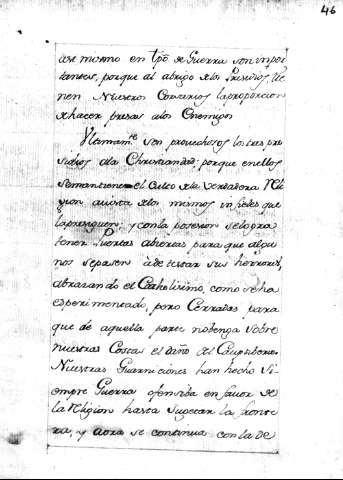 46
assi mismo en tpõ de Guerra son impor
tantes, porque al abrigo de los Presidios, tie
nen Nuestros Corsarios la proporcion
de hacer presas a los Enemigos
Ultimam.te son provechosos los tres pre
sidios a la Christiandad; porque en ellos
se mantiene el Culto de la Verdadera Reli
gion, a vista de los mismos infieles que
la persiguen; y con la posesion se logra
tener Puertas abiertas para que algu
nos se pasen à detestar sus herrores,
abrazando el Catholisimo, como se ha
experimentado, pero Cerradas para
que de aquella parte no benga sobre
nuestras Costas el daño del Captiberio.
Nuestras Guarniciones han hecho Si
empre Guerra ofensiba en favor de
la Religion hasta sugetar la fronte
ra, y aora se continua con la de